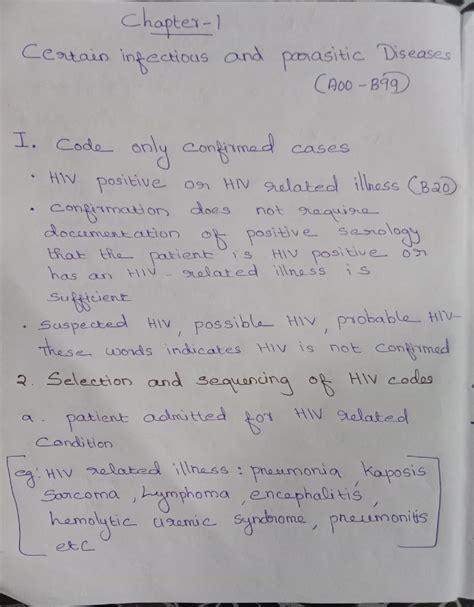 Chapter-1
Certain infectious and parasitic Diseases
(A00-B99)
I. Code only confirmed cases
• HIV positive or HIV related illness (B20)
• confirmation does not require
documentation of positive serology
that the patient is HIV positive or
has an HIV-related illness is
sufficient
• suspected HIV, possible HIV, probable HIV-
These words indicates HIV is not confirmed
2. Selection and sequencing of HIV codes
a. patient admitted for HIV related
Condition
eg: HIV related illness: pneumonia, kaposis
Sarcoma, Lymphoma, encephalitis,
hemolytic uremic syndrome, pneumonitis
etc